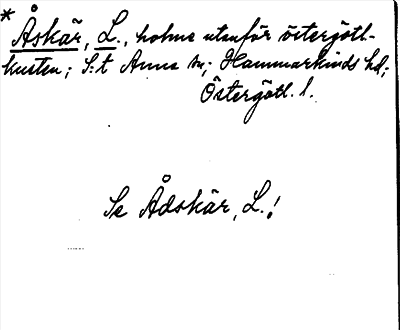 * Åskär, L., holme utanför östergötl-
kusten; S:t Anna sn; Hammarkinds hd;
Östergötl. l.
Se Ådskär, L.!